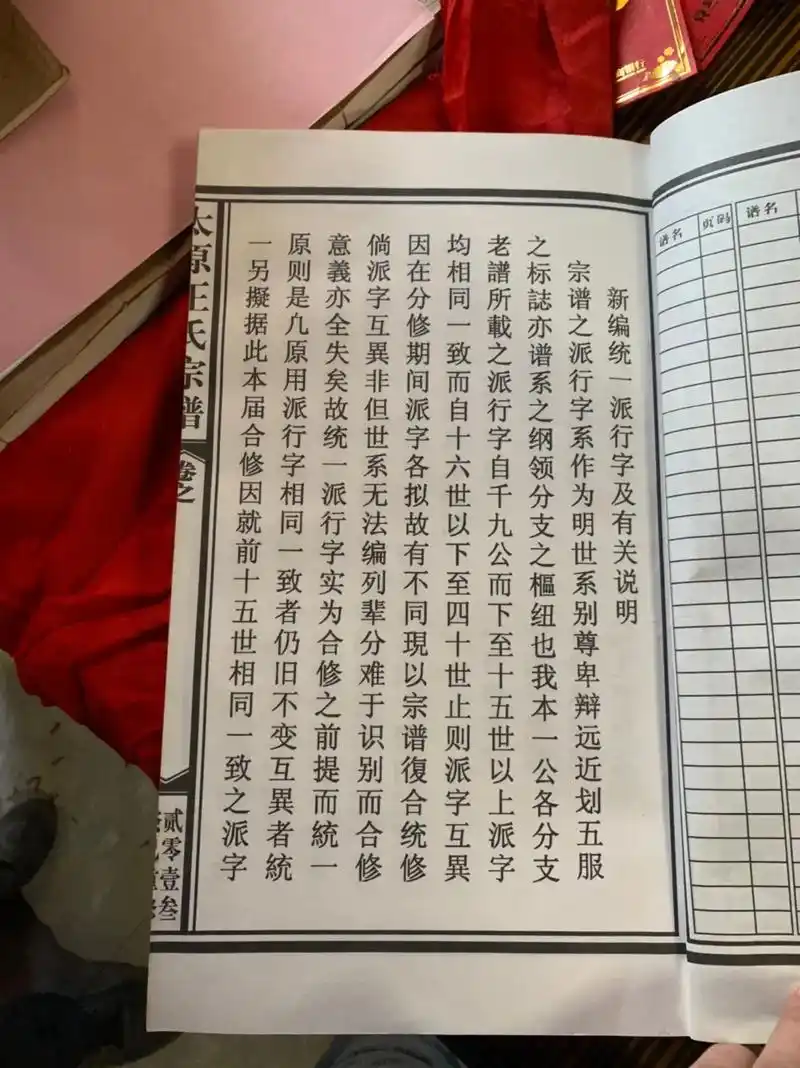 新编统一派行字及有关说明
宗谱之派行字系作为明世系别尊卑辩远近划五服
之标誌亦谱系之纲领分支之樞纽也我本一公各分支
老譜所載之派行字自千九公而下至十五世以上派字
均相同一致而自十六世以下至四十世止则派字互異
因在分修期间派字各拟故有不同現以宗谱復合统修
倘派字互異非但世系无法编列辈分难于识别而合修
意義亦全失矣故统一派行字实为合修之前提而統一
原则是凢原用派行字相同一致者仍旧不变互異者統
一另擬据此本届合修因就前十五世相同一致之派字
太原王氏宗譜
卷之
贰零壹叁
谱名
页码
谱名